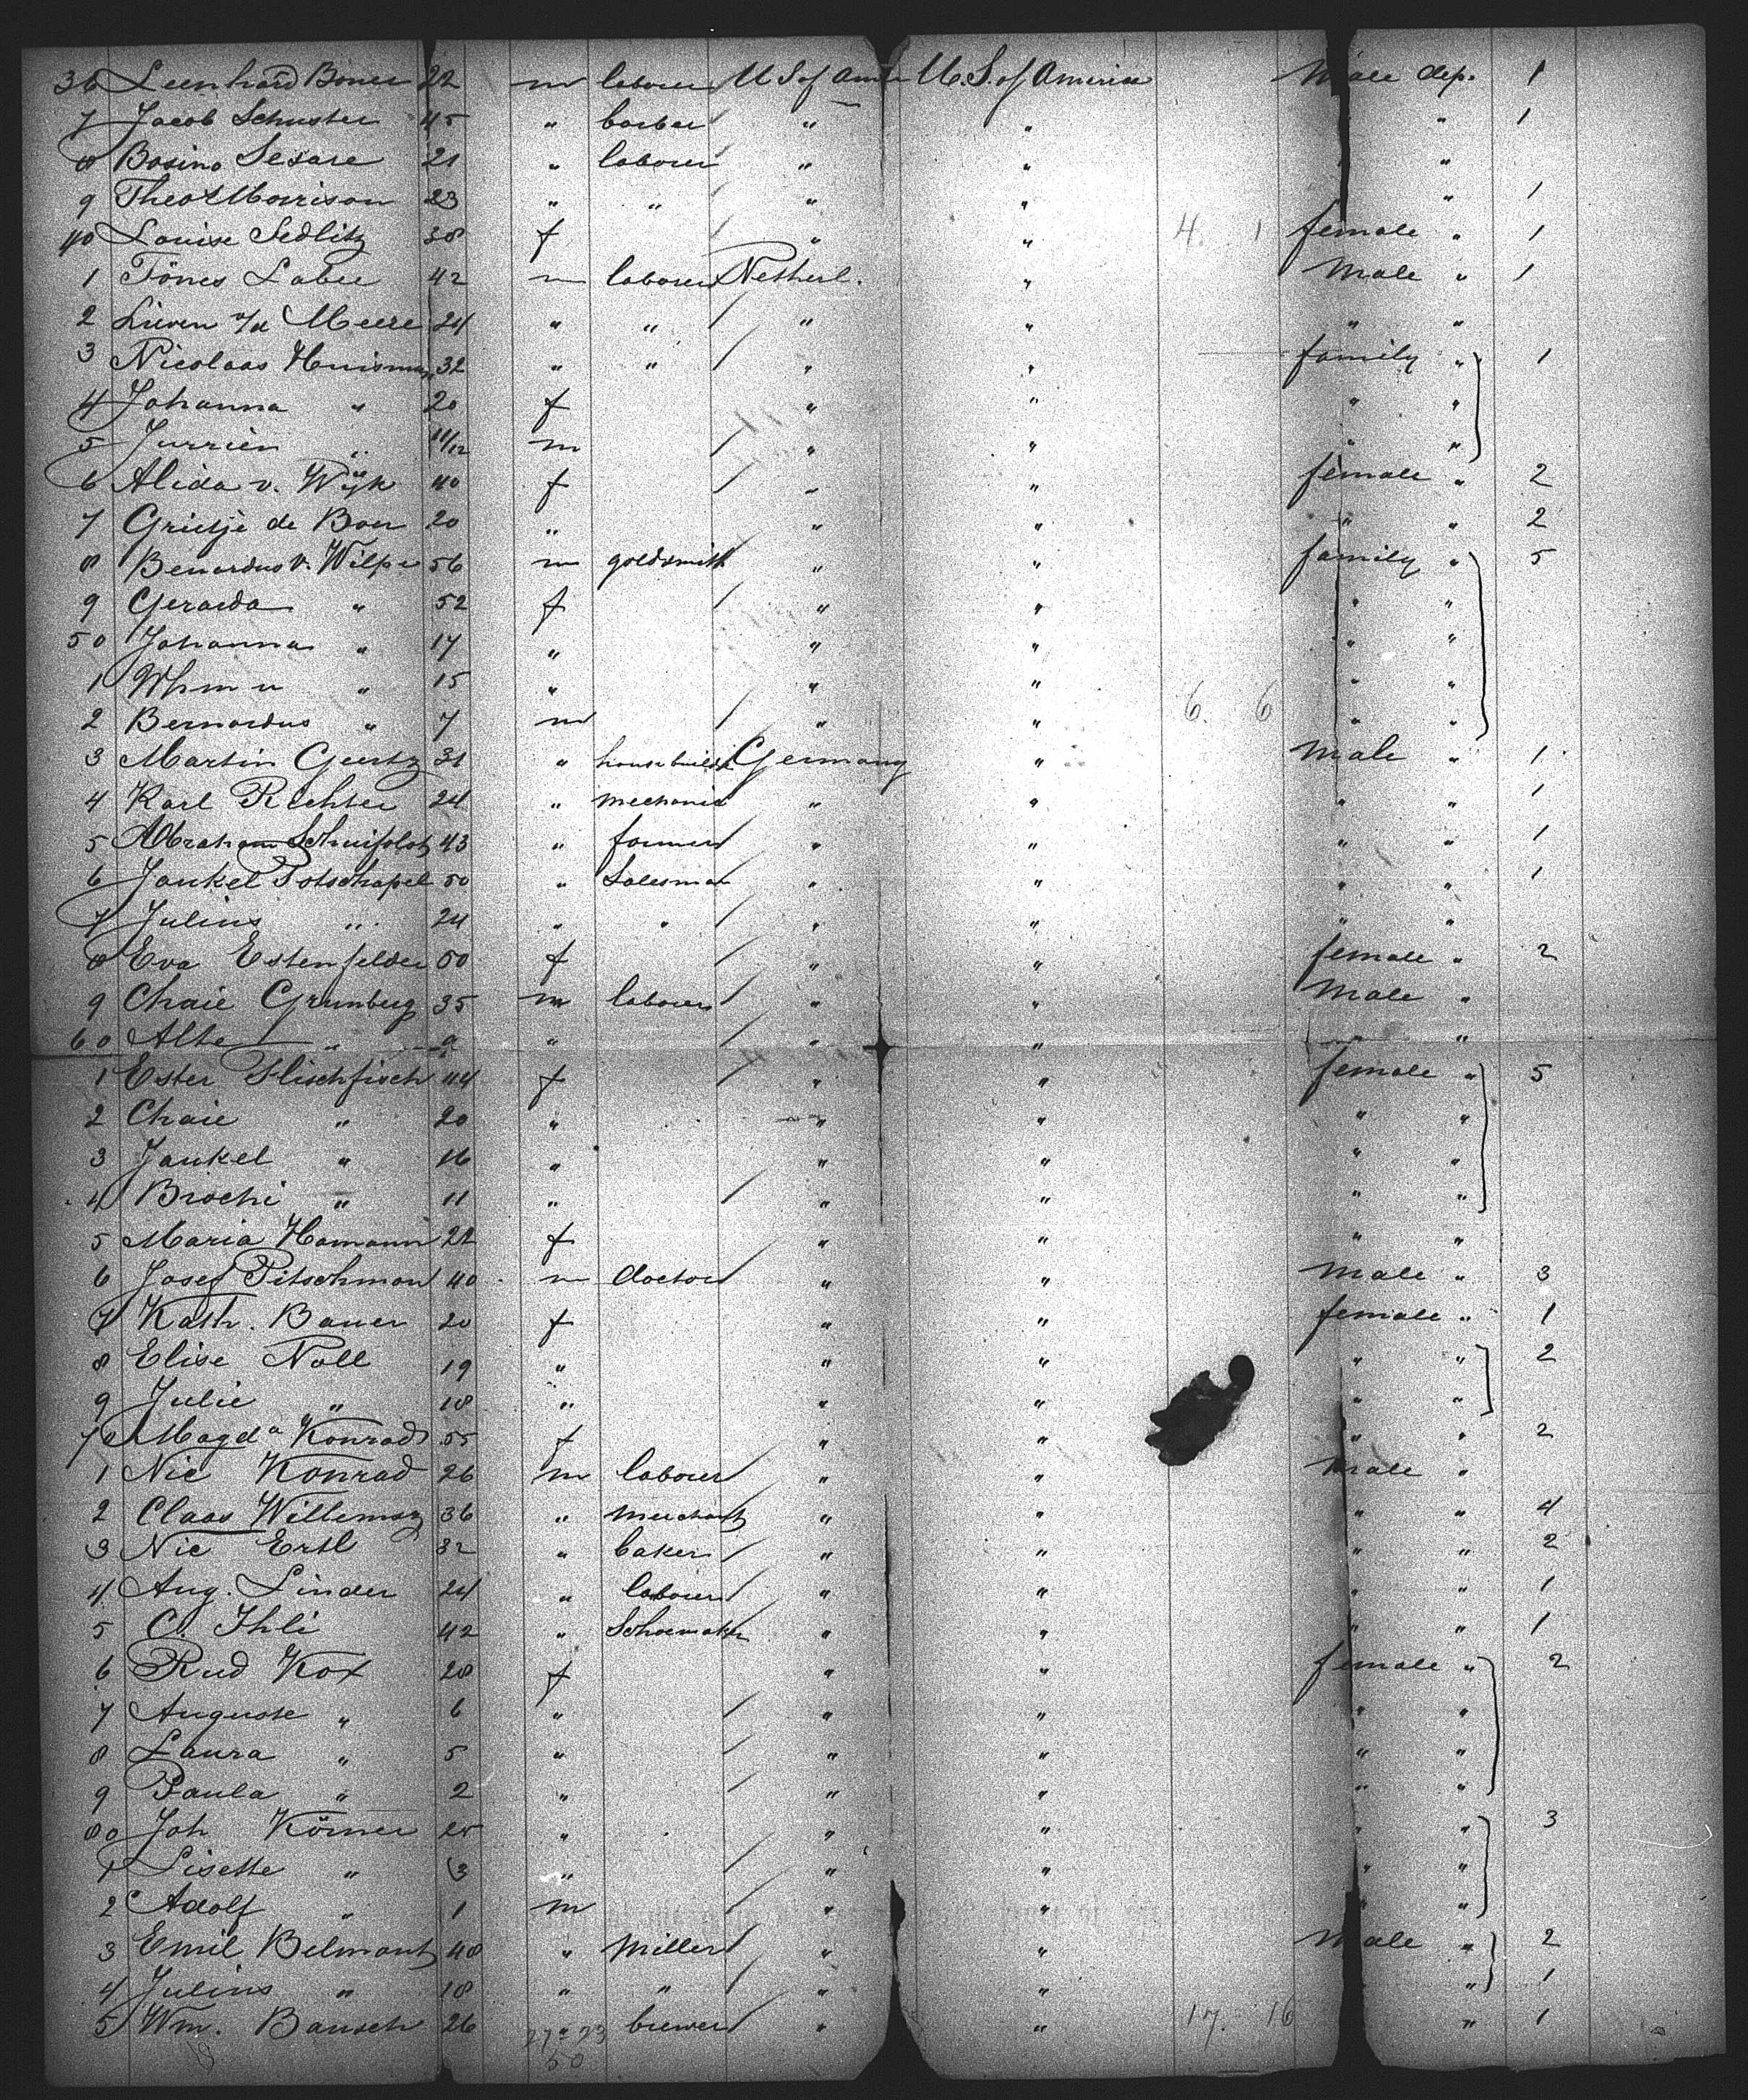 36 Leenhard Boner 22 m laborer U S of Ame U. S. of America Male dep. 1
7 Jacob Schuster 45 " barber " " " 1
8 Bosino Sesare 21 " laborer " " "
9 Theo Morrison 23 " " " " " 1
40 Louise Sedlitz 38 f " " 4. 1 female " 1
1 Tönes Labee 42 m laborer Netherl. " Male " 1
2 Lieven v/d Meere 24 " " " " " "
3 Nicolaas Huisman 32 " " " " family " 1
4 Johanna " 20 f " " " "
5 Jurrien " 11/12 m " " " "
6 Alida v. Wijk 40 f " " female " 2
7 Grietje de Boer 20 " " " " " 2
8 Benardus v. Wilpe 56 m goldsmith " " family " 5
9 Gerarda " 52 f " " " "
50 Johanna " 17 " " " " "
1 Whmu " 15 " " " " "
2 Bernardus " 7 m " " 6. 6 " "
3 Martin Geertz 31 " Germany " Male " 1
4 Karl Richter 24 " mechanic " " " " 1
5 Abraham 43 " farmer " " " " 1
6 Jankel Potschapel 50 " Salesman " " " " 1
7 Julius " 24 " " " " " "
8 Eva Estenfelder 50 f " " female " 2
9 Chaie Grunberg 35 m laborer " " Male "
60 Alte " 9 " " " " "
1 Ester Flischfisch 44 f " " female " 5
2 Chaie " 20 " " " " "
3 Jankel " 16 " " " " "
4 Brochi " 11 " " " " "
5 Maria Hamann 22 f " " " "
6 Josef Pitschman 40 m doctor " " Male " 3
7 Kath. Bauer 20 f " " female " 1
8 Elise Noll 19 " " " " " 2
9 Julie " 18 " " " " "
70 Magda Konrad 55 f " " " " 2
1 Nic Konrad 26 m laborer " " Male "
2 Claas Willemsz 36 " Merchant " " " " 4
3 Nic Ertl 32 " baker " " " " 2
4 Aug. Linder 24 " laborer " " " " 1
5 C. Ihli 42 " Schoemaker " " " " 1
6 Rud Kox 28 f " " female " 2
7 Auguste " 6 " " " " "
8 Laura " 5 " " " " "
9 Paula " 2 " " " " "
80 Joh Körner 25 " " " " " 3
1 Lisette " 3 " " " " "
2 Adolf " 1 m " " " "
3 Emil Belmont 48 " Miller " " Male " 2
4 Julius " 18 " " " " " 1
5 Wm. Bausch 26 " brewer " " 17. 16 " 1
27 23
50